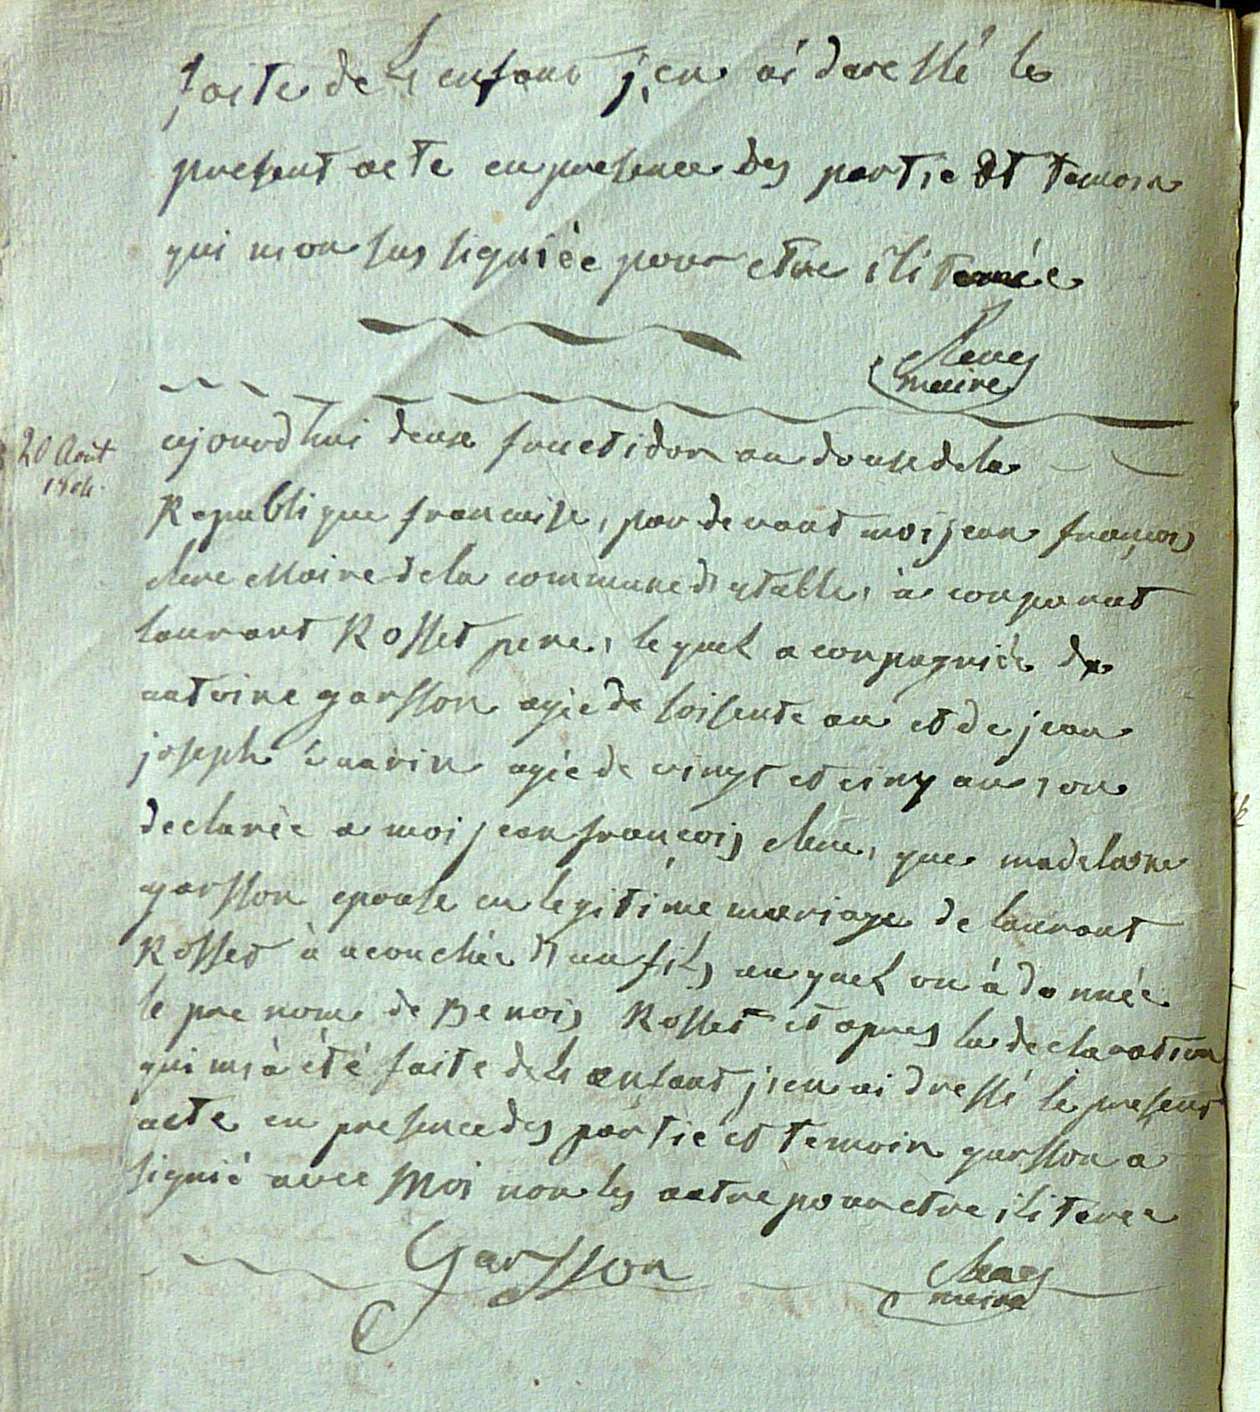 faite de L enfant j,en ai daressé le
present acte en presence des partie et temoin
qui mon sus signiée pour etre iliterée
maire
20 Août
1804.
ajourd'hui deux fructidor an douse de la
Republique francaise, par devant moi jean françois
clerc Maire de la commune d'etable, à comparut
laurant Rosset pere, lequel acompagniée de
antoine garsson agée de soisente an et de jean
joseph Guarin agée de vingt et cinq an, on
declarée a moi jean françois clerc, que madelaine
garsson epouse en legitime mariage de laurant
Rosset à acouchée d'un fils auquel on à donnée
le pre nom de Benois Rosset et apres la declaration
qui m'à été faite de L'enfant j'en ai dressé le present
acte en presence des partie et temoin garsson a
signié avec Moi non les autre pour etre iliterée
Garsson
maire